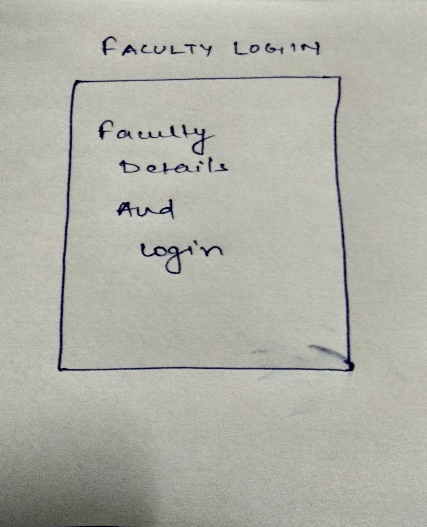 FACULTY LOGIN
Faculty
Details
And
Login